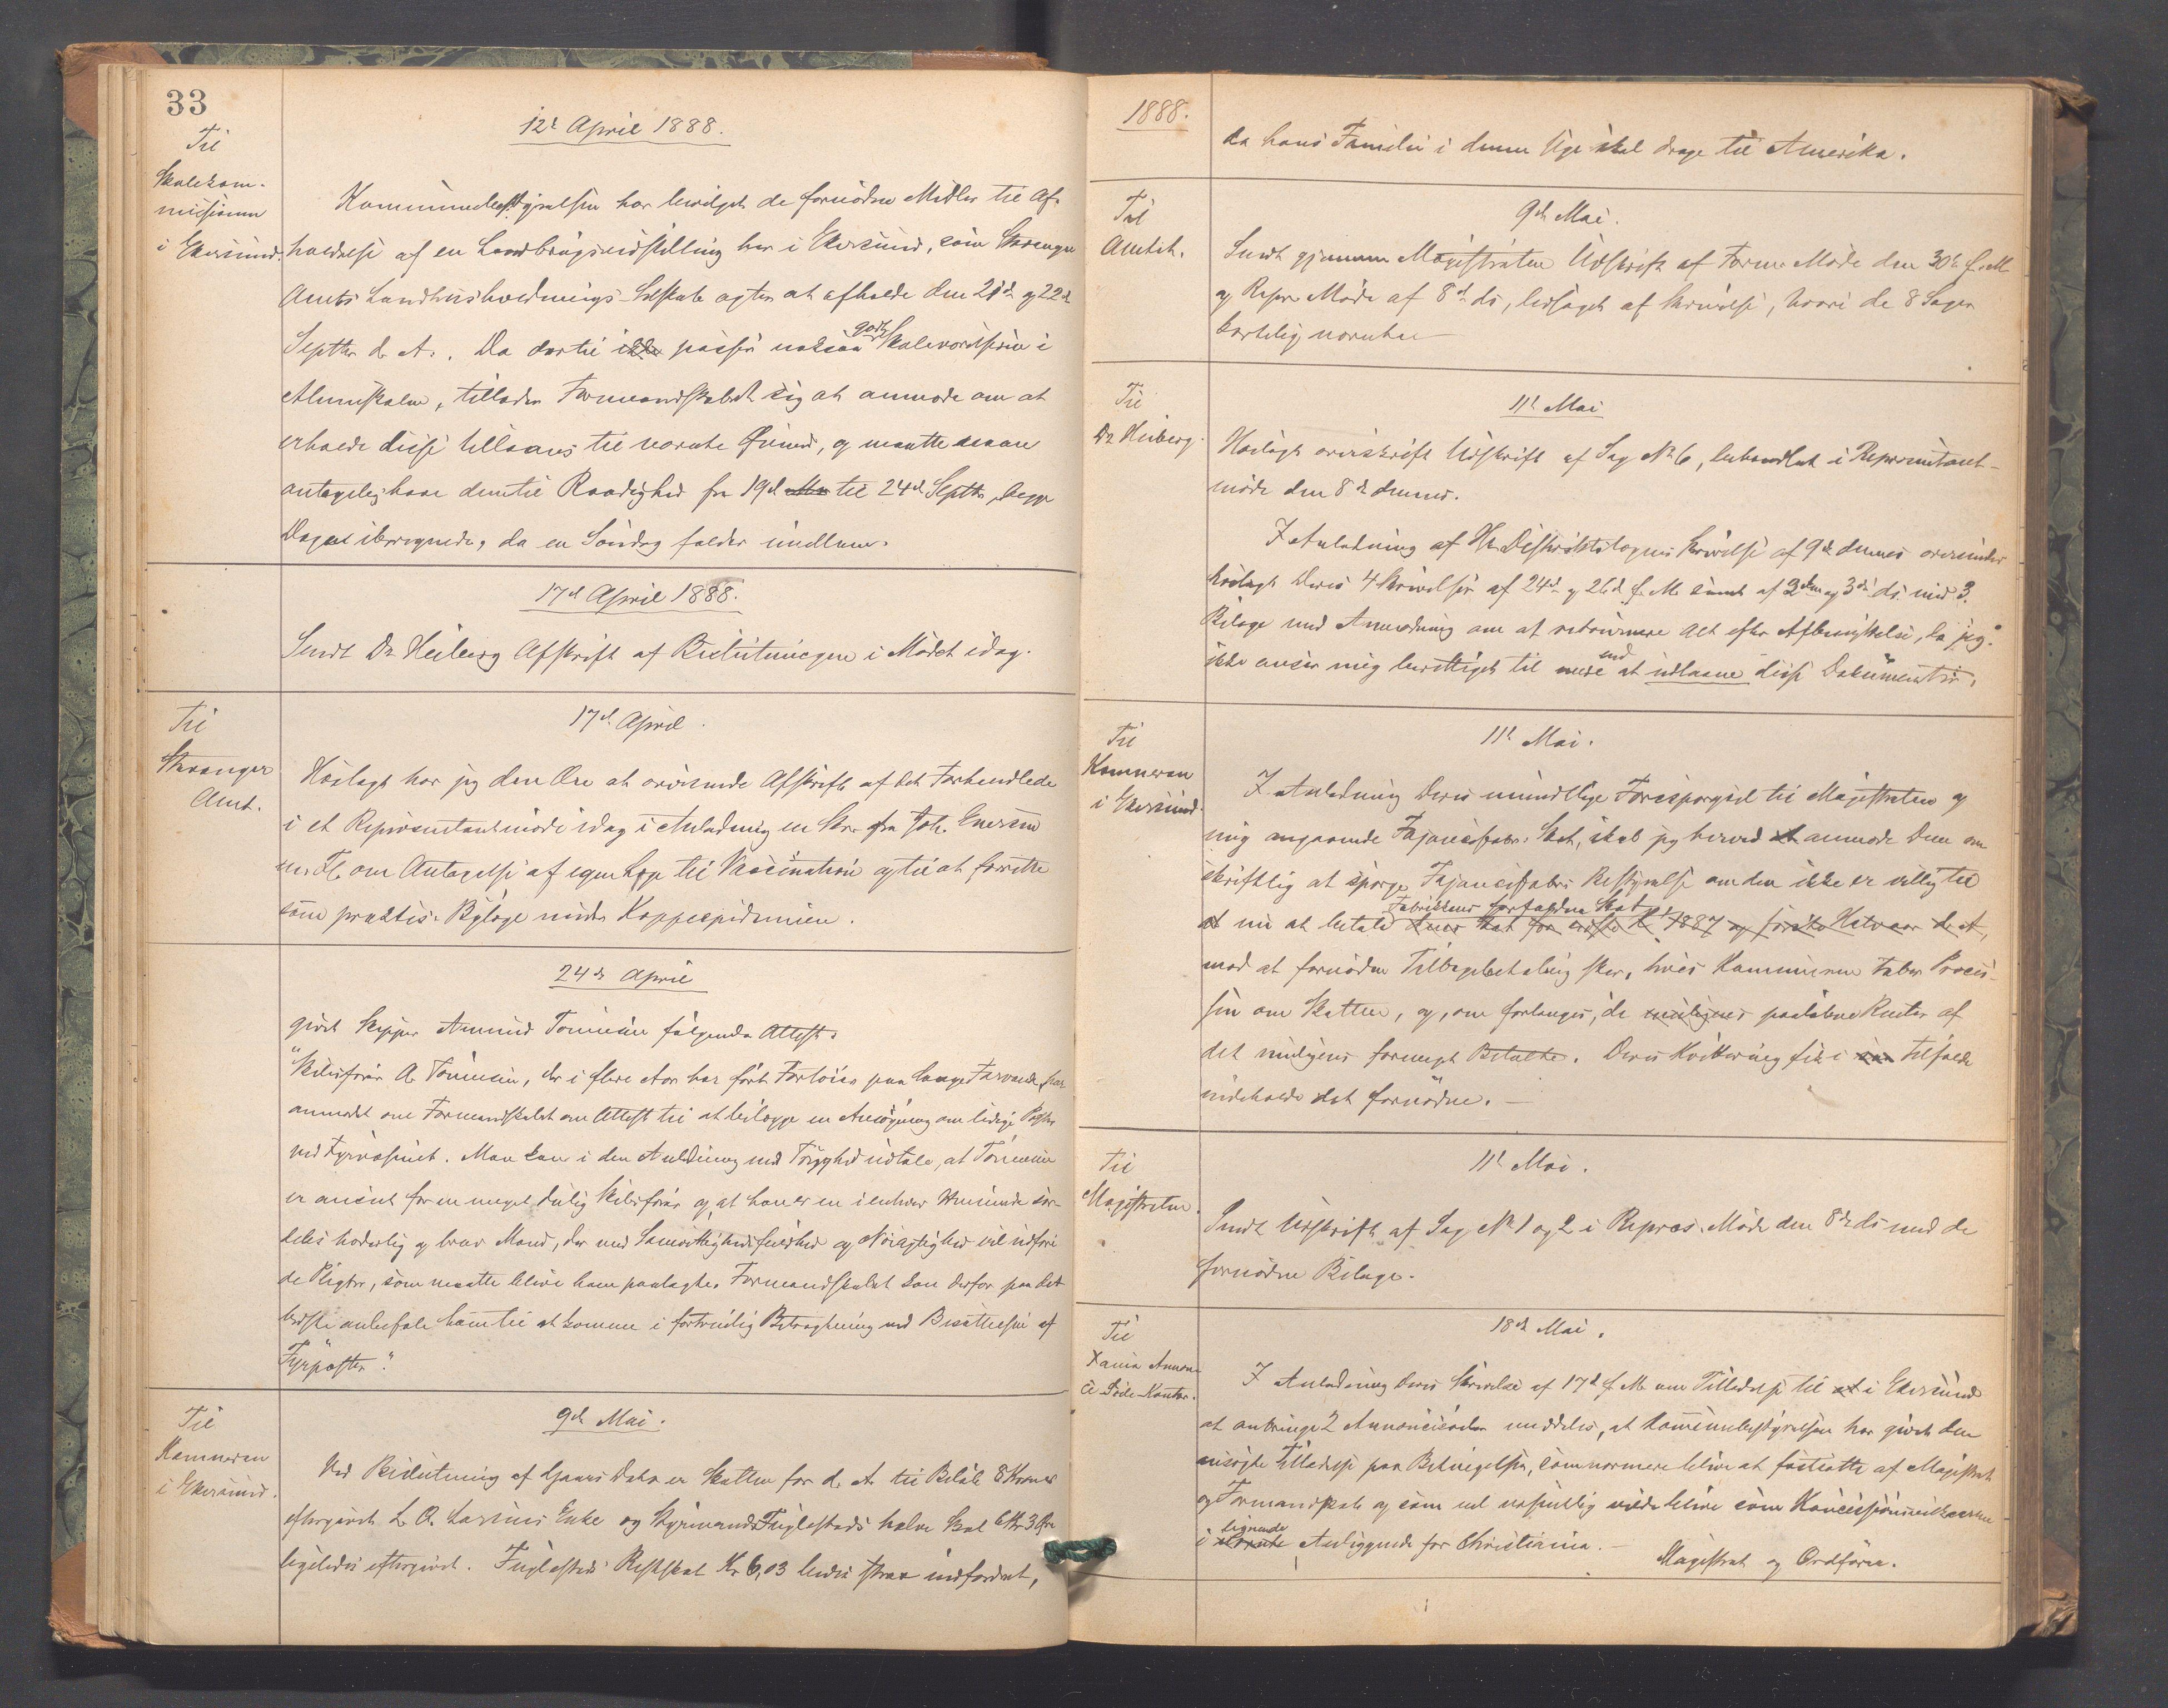 33
12t April 1888.
Til
Skolekom-
missionen
i Ekersund.
Kommunebestyrelsen har bevilget de fornödne Midler til Af-
holdelse af en Landbrugsudstilling her i Ekersund, som Stavanger
Amts Landhusholdnings-Selskab agter at afholde den 21de og 22de
Septbr d. A. Da dertil ikke passer noksaa godt Skoleværelserne i
Almueskolen, tillader Formandskabet sig at anmode om at
erholde disse tillaans til nævnte Öiemed, og maatte man
antagelig have dem til Raadighed fra 19de til 24de Septbr, begge
Dage iberegnede, da en Söndag falder imellem.
17de April 1888.
Sendt Dr Heiberg Afskrift af Beslutningen i Mödet idag.
Til
Stavanger
Amt.
17de April.
Hoslagt har jeg den Ære at oversende Afskrift af det Forhandlede
i et Repræsentantmöde idag i Anledning en Skr. fra Joh. Enersen
m. Fl. om Antagelse af egen Læge til Vaccination og til at forrette
som praktis. Bylæge under Koppeepidemien.
24de April
givet Skipper Amund Tönnesen fölgende Attest:
"Skibsförer A. Tönnesen, der i flere Aar har fört Fartöier paa lange Farvande, har
anmodet om Formandskabet om Attest til at bilægge en Ansögning om ledige Poster
ved Fyrvæsenet. Man kan i den Anledning med Tryghed udtale, at Tönnesen
er anseet for en meget dulig Skibsförer og at han er en i enhver Henseende sær-
deles hæderlig og brav Mand, der med Samvittighedsfuldhed og Nöiagtighed vil udföre
de Pligter, som maatte blive ham paalagte. Formandskabet kan derfor paa det
bedste anbefale ham til at komme i fortrinlig Betragtning ved Besættelsen af
Fyrposter."
Til
Kæmneren
i Ekersund.
9de Mai.
Ved Beslutning af Gaars Dato er Skatten for d. A. til Belöb 8 Kroner
eftergivet L. O. Larsens Enke og Styrmand Fuglestads halve Skat 6 Kr 3 Öre
ligeledes eftergivet. Fuglestads Restskat Kr 6,03 bedes strax indfordret,
1888.
da hans Familie i denne Uge skal drage til Amerika.
Til
Amtet.
9de Mai.
Sendt gjennem Magistraten Udskrift af Form. Möde den 30te f. M.
og Repr. Möde af 8de ds, ledsaget af Skrivelse, hvori de 8 Sager
kortelig nævntes
Til
Dr Heiberg.
11t Mai
Hoslagt oversendes Udskrift af Sag No 6, behandlet i Repræsentant-
möde den 8de dennes.
I Anledning af Hr Distriktslægens Skrivelse af 9de dennes oversendes
hoslagt Deres 4 Skrivelser af 24de og 26de f. M. samt af 2den og 3die ds med 3
Bilage med Anmodning om at returnere Alt efter Afbenyttelse, da jeg
ikke anser mig berettiget til mere end at udlaane disse Dokumenter.
Til
Kæmneren
i Ekersund.
11t Mai.
I Anledning Deres mundtlige Forespörgsel til Magistraten og
mig angaaende Fajancefabr. Skat, skal jeg herved at anmode Dem om
skriftlig at spörge Fajancefabr. Bestyrelse om den ikke er villig til
at nu at betale Fabrikkens forfaldne Skat deres Skat for sidste H. 1887 og förste Halvaar d. A,
mod at fornöden Tilbagebetaling sker, hvis Kommunen taber Proces-
sen om Skatten, og, om forlanges, de muligens paalöbne Renter af
det muligens formeget Betalte. Deres Kvittering fik i saa Tilfælde
indeholde det fornödne.
Til
Magistraten.
11t Mai.
Sendt Udskrift af Sag No 1 og 2 i Repræs. Möde den 8de ds med de
fornödne Bilage.
Til
Xania Annon-
ce Söile-Kontor.
18de Mai.
I Anledning Deres Skrivelse af 17de f. M. om Tilladelse til at i Ekersund
at anbringe 2 Annoncesöiler meddeles, at Kommunebestyrelsen har givet den
ansögte Tilladelse paa Betingelser, som nærmere blive at fastsætte af Magistrat
og Formandskab og som vel væsentlig vilde blive som Koncessionsvilkaarene
i lignende Anliggende for Christiania.
Magistrat og Ordförer.